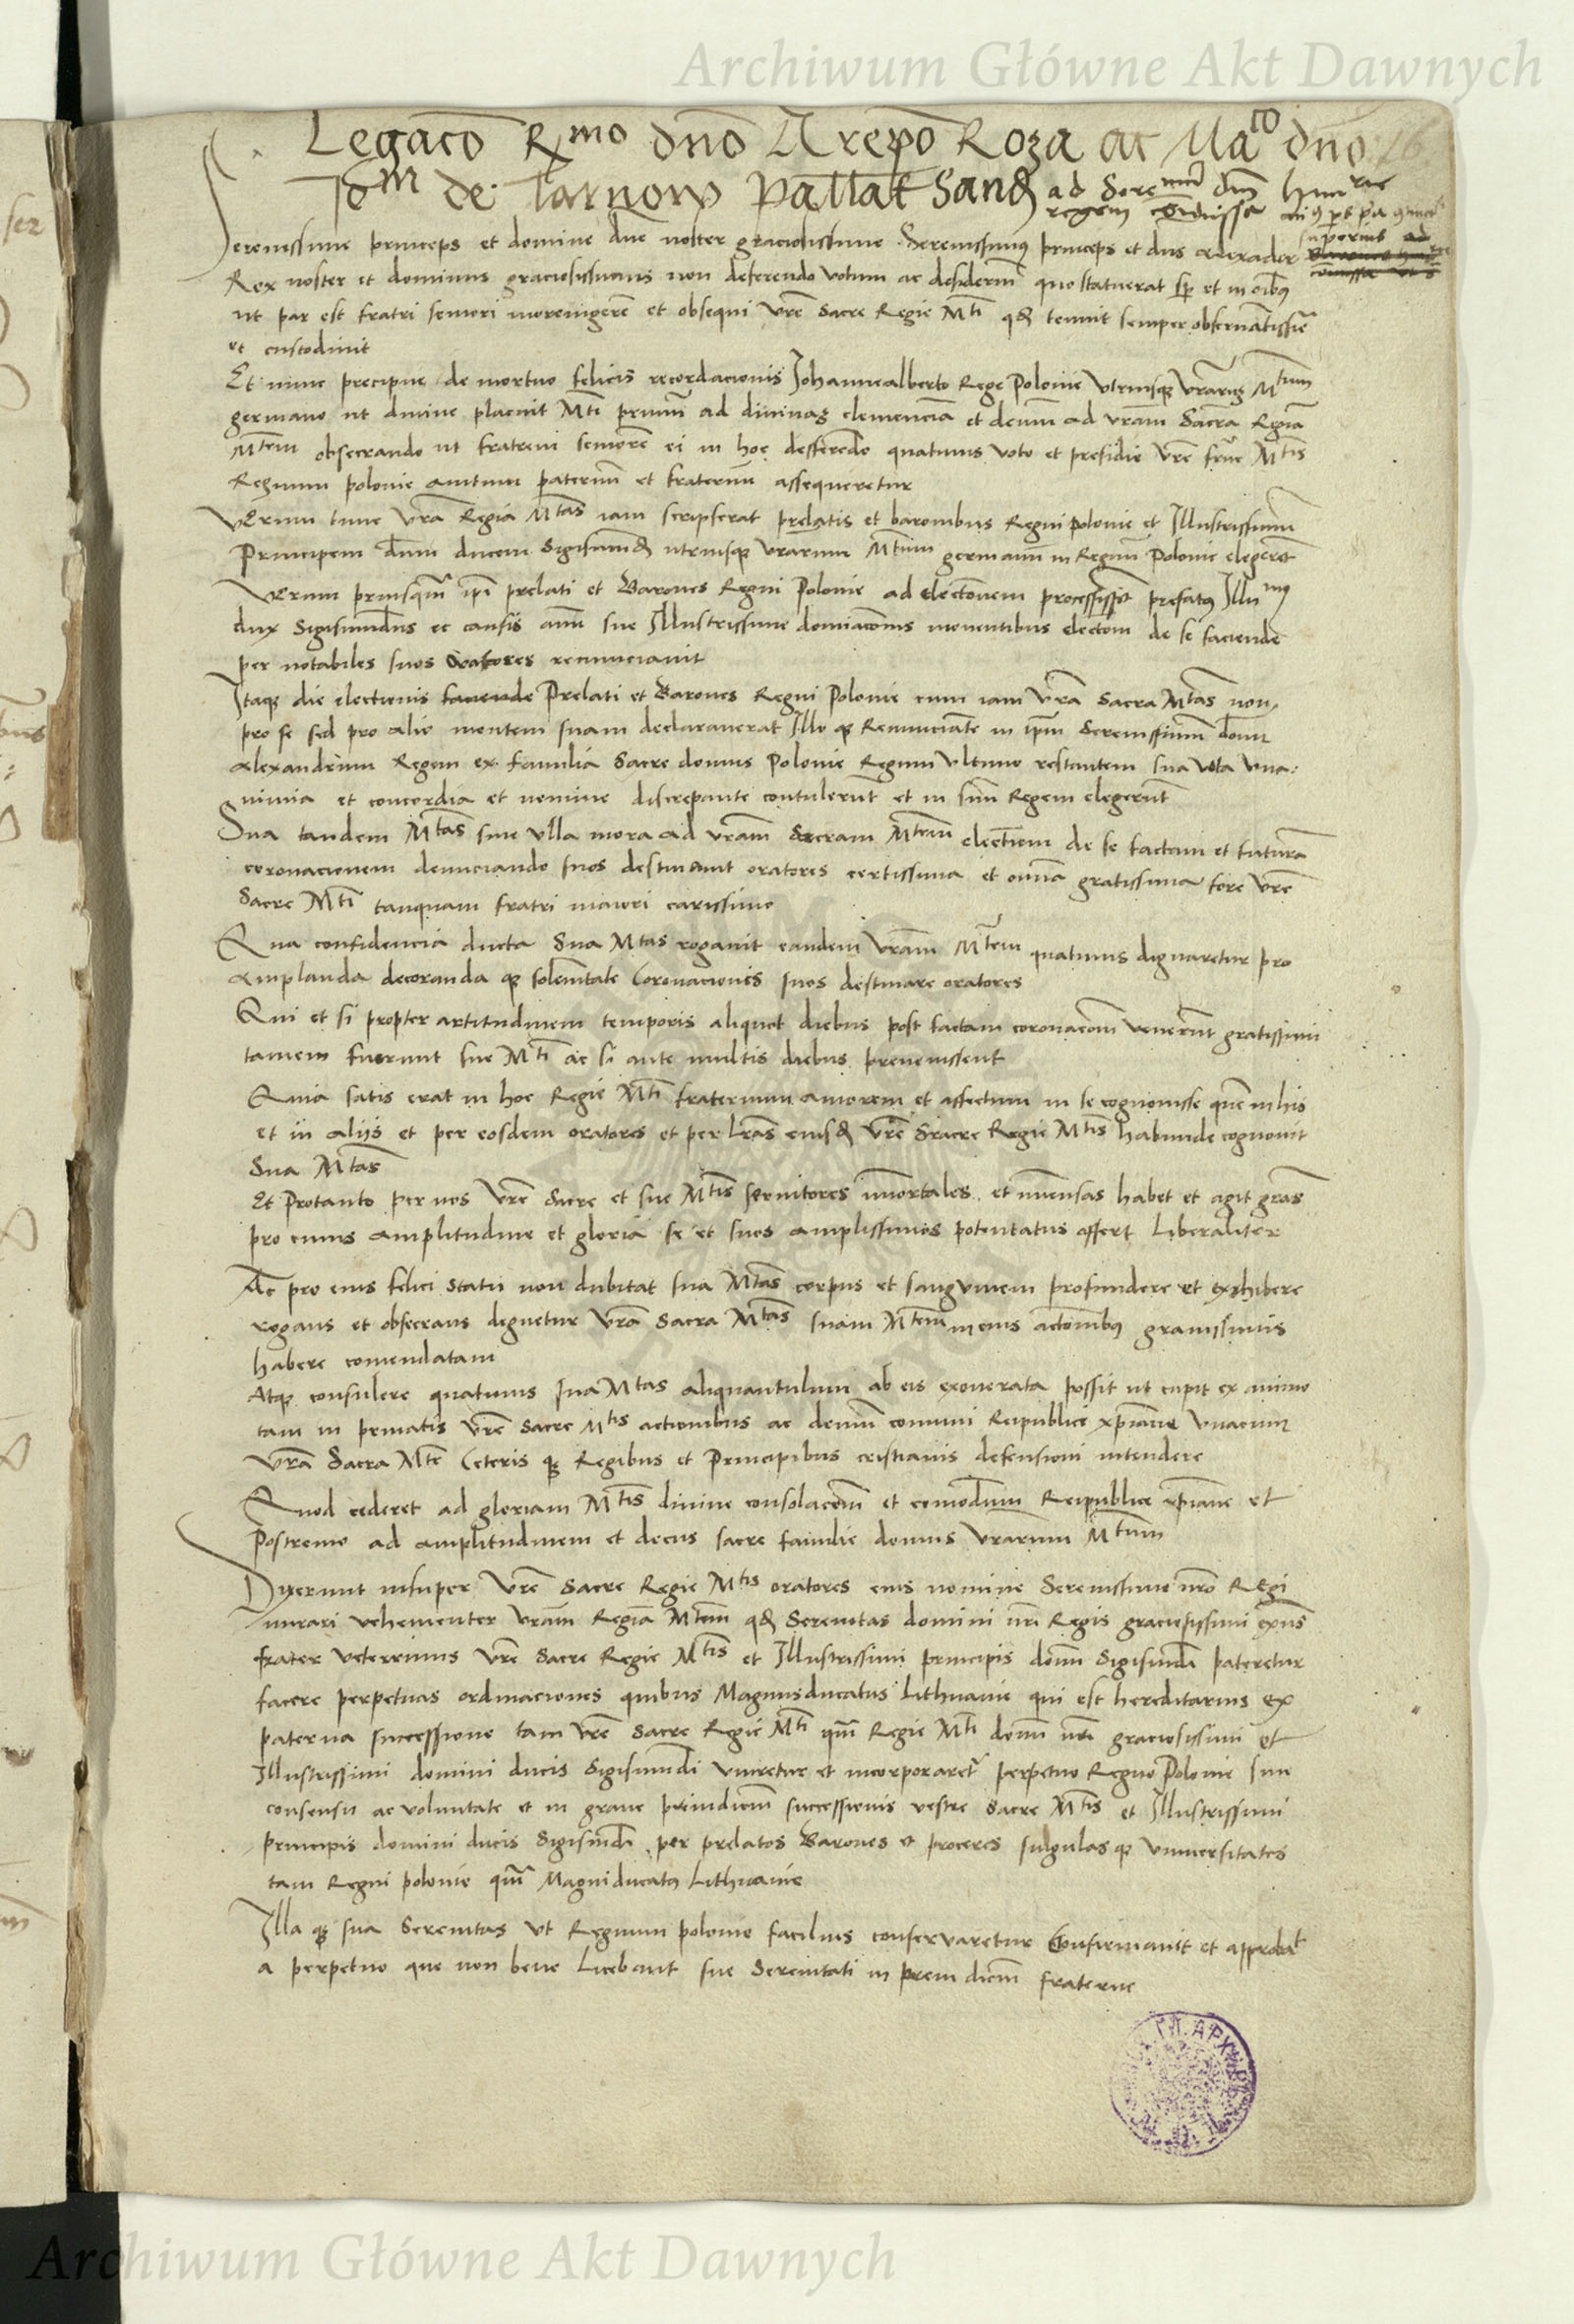 Archiwum Główne Akt Dawnych
Legaco R^mo dno A repo Roza ac Ma^co dno
Jo^m de Tarnow Pallat Sand ad Sere^mu dm Hung^rie
regem
superius ad
Serenissime princeps et domine dne noster graciosissime Serenissimus princeps et dns Alexader
Rex noster et dominus graciosissimus non deserendo votum ac desiderium quo statuerat sp et in oibus
ut par est fratri seniori morem gerere et obsequi vre Sacre Regie Mti qd tenuit semper observantissie
et custodivit
Et nunc precipue de mortuo felicis recordacionis Johannealberto Rege Polonie utriusque vrarum Mtum
germano ut divine placuit Mti primum ad divinas clemencia et demum ad vram Sacra Regia
Mtem obsecrando ut fratrem seniore ei in hoc defferedo quatinus voto et presidio vre frne Mtis
Regnum polonie avitum paternum et fraternum assequeretur
Verum tunc vra Regia Mtas iam scripserat prelatis et baronibus Regni polonie et Illustrissimum
Principem dum ducem Sigismund utriusque vrarum Mtum germanum in Regnum Polonie elegeret
Verum priusquam ipi prelati et Barones Regni Polonie ad electonem processisset prefatus Illu^mus
dux Sigismundus ex causis aium sue Illustrissime domiacionis moventibus electom de se faciende
per notabiles suos oratores renunciavit
Itaque die electionis faciende Prelati et Barones Regni Polonie cum iam Vra Sacra Mtas non
pro se sed pro alio mentem suam declaraverat Illo que Renunciate in ipm Serenissimum domi
Alexandrum Regem ex familia Sacre domus Polonie Regum ultimo restantem sua vota una-
nimia et concordia et nemine discrepante contulerut et in sum Regem elegerut
Sua tandem Mtas sine ulla mora ad vram Sacram Mtem electioem de se factam et futura
coronacionem denunciando suos destinavit oratores certissima et omnia gratissima fore vre
Sacre Mti tanquam fratri maiori carissimo
Qua confidencia ducta Sua Mtas rogavit eandem vram Mtem quatinus dignaretur pro
amplianda decoranda que solemnitate Coronacionis suos destinare oratores
Qui et si propter artitudinem temporis aliquot diebus post factam coronacom venerut gratissimi
tamen fuerunt sue Mti ac si ante multis diebus prevenissent
Quia satis erat in hoc Regie Mti fraternum amorem et affectum in se cognovisse quem in his
et in alijs et per eosdem oratores et per lras eiusd vre Sacre Regie Mtis habunde cognovit
Sua Mtas
Et Protanto per nos vre Sacre et sue Mtis servitores immortales et immensas habet et agit gras
pro cuius amplitudine et gloria se et suos amplissimos potentatus offert liberaliter
Ac pro eius felici statu non dubitat sua Mtas corpus et sangvinem profundere et exhibere
rogans et obsecrans dignetur vra Sacra Mtas suam Mtem in eius actionibus gravissimis
habere comendatam
Atque consulere quatinus sua Mtas aliquantulum ab eis exonerata possit ut cupit ex animo
tam in privatis vre Sacre Mtis actionibus ac demum comuni Reipublice xpiane unacum
vra Sacra Mte Ceteris que Regibus et Principibus cristianis defensioni intendere
Quod cederet ad gloriam Mtis divine consolacem et comodum Reipublice xpiane et
Postremo ad amplitudinem et decus sacre familie domus vrarum Mtum
Dixerunt insuper vre Sacre Regie Mtis oratores eius nomine Serenissimo nro Regi
mirari vehementer vram Regia Mtem qd Serenitas domini nri Regis graciosissimi
frater uterinus vre Sacre Regie Mtis et Illustrissimi principis domi Sigismdi pateretur
facere perpetuas ordinaciones quibus Magnusducatus Lithuanie qui est hereditarius ex
paterna successione tam vre Sacre Regie Mti quam Regie Mti domi nri graciosissimi et
Illustrissimi domini ducis Sigismundi uniretur et incorporaretur perpetuo Regno Polonie sine
consensu ac voluntate et in grave preiudicium successionis vestre Sacre Mtis et Illustrissimi
principis domini ducis Sigismdi per prelatos Barones et proceres singulas que universitates
tam Regni polonie quam Magniducatus Lithuanie
Illa que sua Serenitas ut Regnum polonie facilius conservaretur Confirmavit et approbat
a perpetuo que non bene licebant sue Serenitati in preiudicium fraterne
Archiwum Główne Akt Dawnych